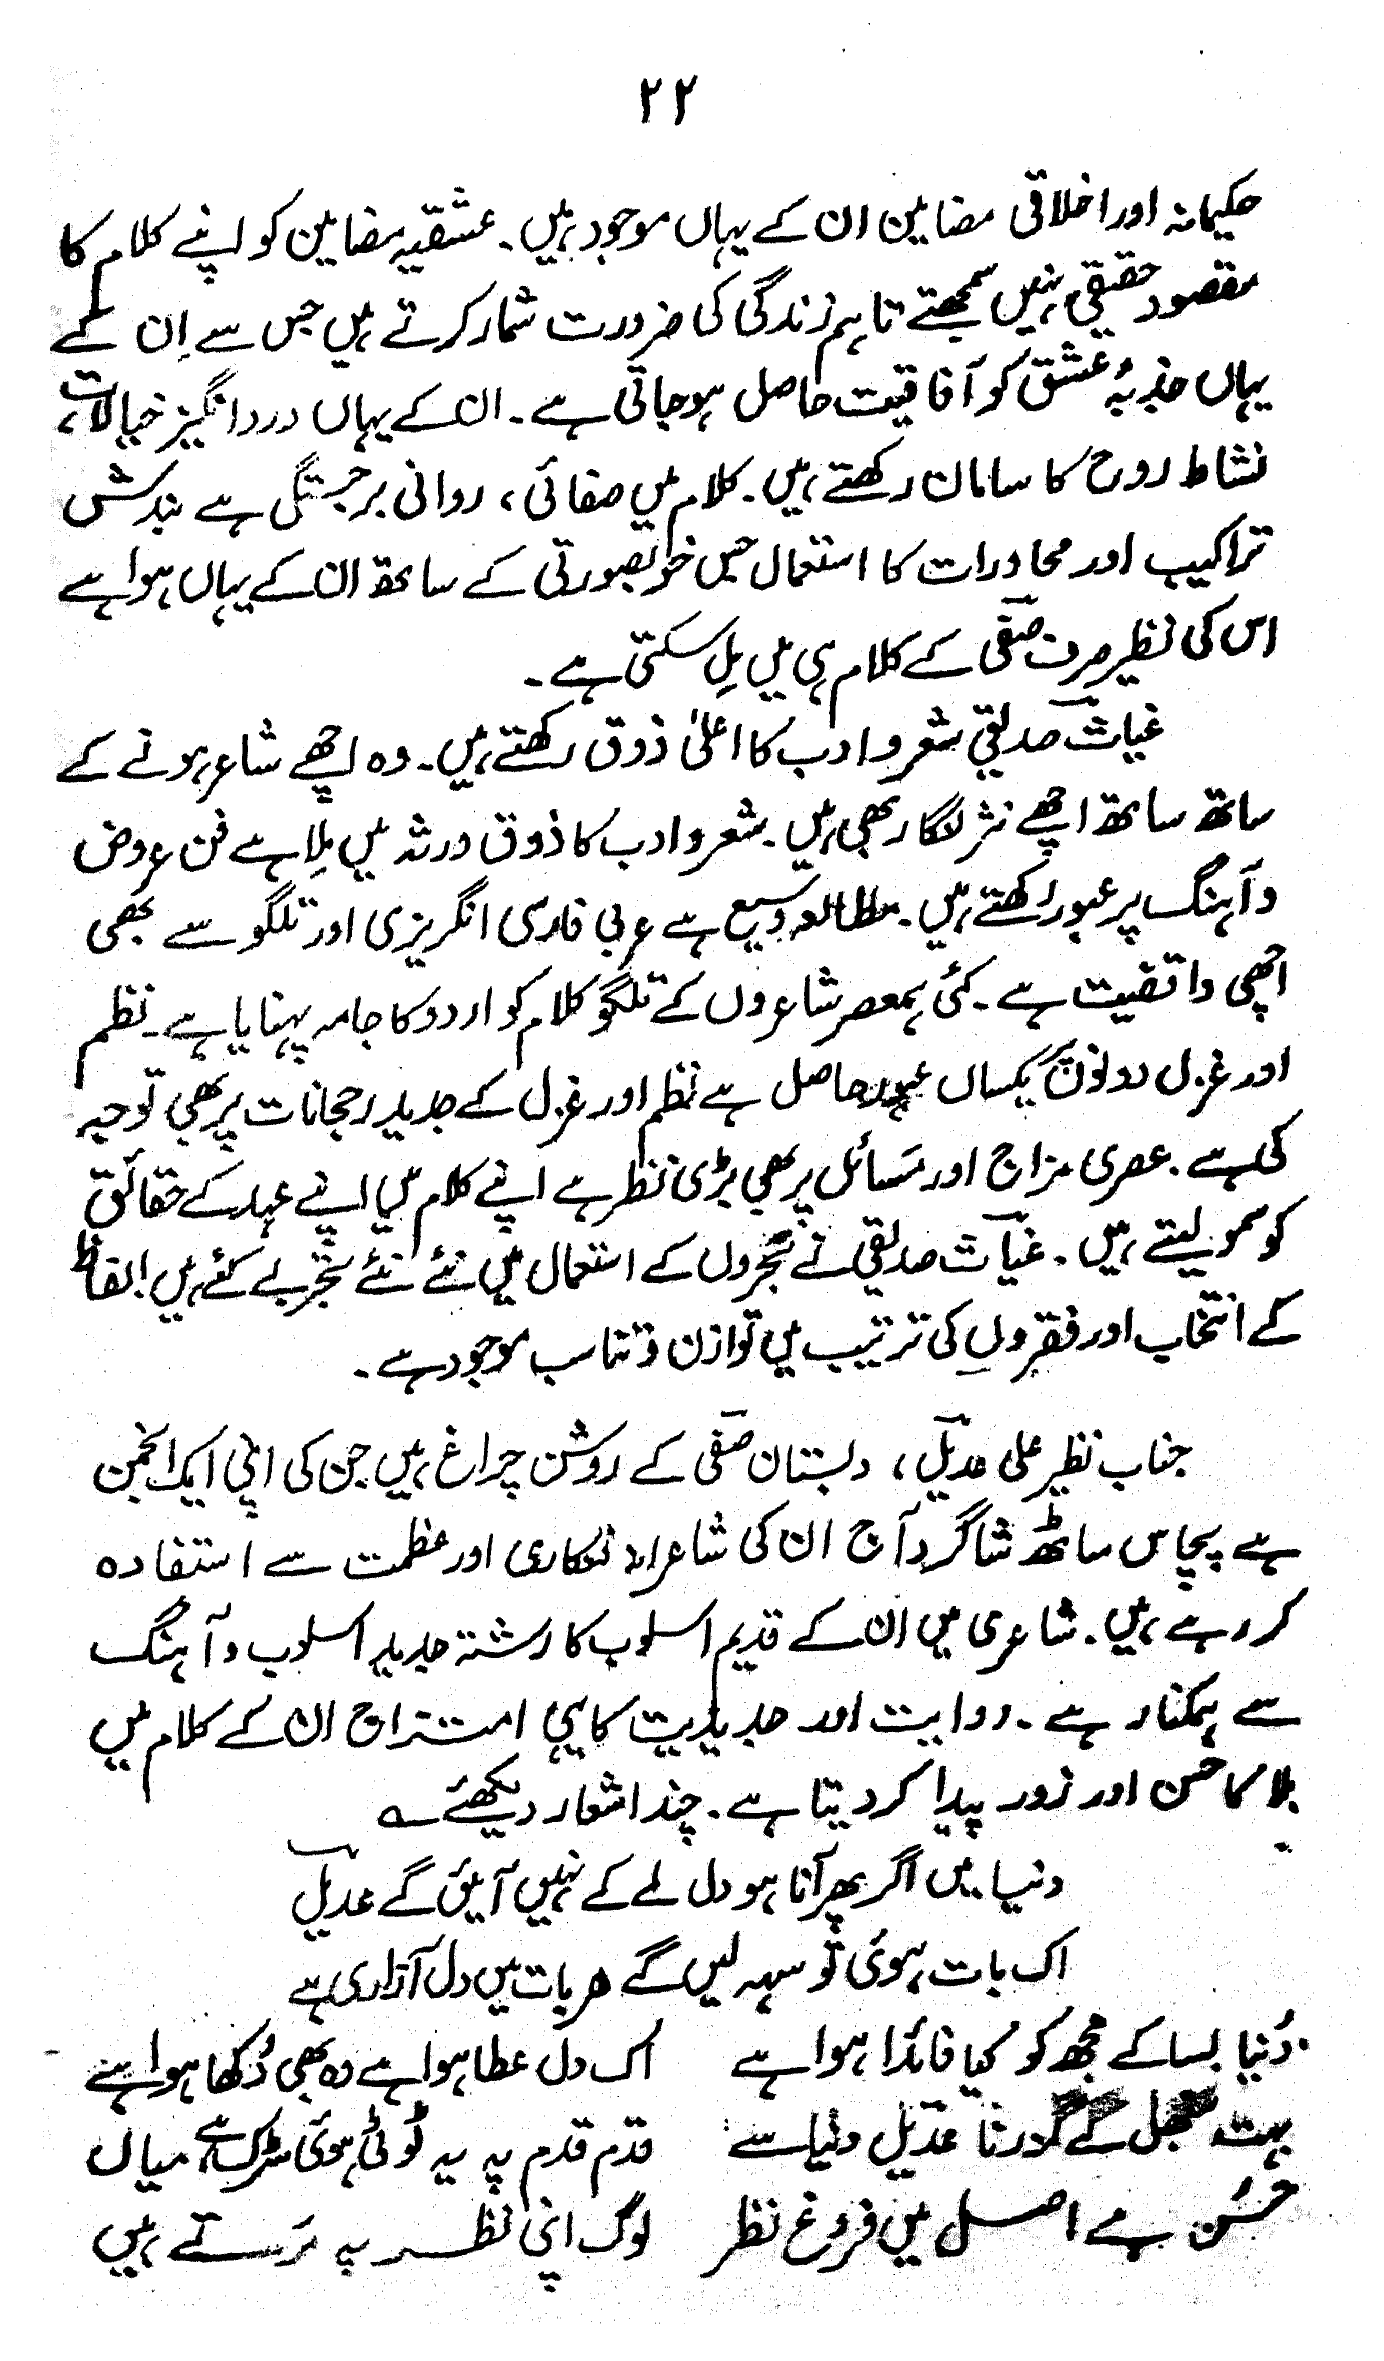 ۲۲
حکیمانہ اور اخلاقی مضامین ان کے یہاں موجود ہیں۔ عشقیہ مضامین کو اپنے کلام کا
مقصود حقیقی نہیں سمجھتے تاہم زندگی کی ضرورت شمار کرتے ہیں جس سے اِن کے
یہاں جذبۂ عشق کو آفاقیت حاصل ہوجاتی ہے۔ ان کے یہاں درد انگیز خیالات،
نشاط روح کا سامان رکھتے ہیں۔ کلام میں صفائی، روانی برجستگی ہے بندش
تراکیب اور محاورات کا استعمال جس خوبصورتی کے ساتھ ان کے یہاں ہوا ہے
اس کی نظیر صرف صفی کے کلام ہی میں مِل سکتی ہے۔
غیاث صدیقی شعر و ادب کا اعلیٰ ذوق رکھتے ہیں۔ وہ اچھے شاعر ہونے کے
ساتھ ساتھ اچھے نثر نگار بھی ہیں۔ شعر و ادب کا ذوق ورثہ میں مِلا ہے فن عروض
و آہنگ پر عبور رکھتے ہیں۔ مطالعہ وسیع ہے عربی فارسی انگریزی اور تلگو سے بھی
اچھی واقفیت ہے۔ کئی ہمعصر شاعروں کے تلگو کلام کو اردو کا جامہ پہنایا ہے۔ نظم
اور غزل دونوں پر یکساں عبور حاصل ہے نظم اور غزل کے جدید رجحانات پر بھی توجہ
کی ہے۔ عصری مزاج اور مَسائل پر بھی بڑی نظر ہے اپنے کلام میں اپنے عہد کے حقائق
کو سمو لیتے ہیں۔ غیاث صدیقی نے بحروں کے استعمال میں نئے نئے تجربے کئے ہیں الفاظ
کے انتخاب اور فقروں کی ترتیب میں توازن و تناسب موجود ہے۔
جناب نظیر علی عدیل، دبستان صفی کے روشن چراغ ہیں جن کی اپنی ایک انجمن
ہے پچاس ساٹھ شاگرد آج ان کی شاعرانہ فنکاری اور عظمت سے استفادہ
کر رہے ہیں۔ شاعری میں ان کے قدیم اسلوب کا رشتہ جدید اسلوب و آہنگ
سے ہمکنار ہے۔ روایت اور جدیدیت کا یہی امتزاج ان کے کلام میں
بلا کا حسن اور زور پیدا کر دیتا ہے۔ چند اشعار دیکھئے ؎
دنیا میں اگر پھر آنا ہو دل لے کے نہیں آئیں گے عدیل
اک بات ہوئی تو سہہ لیں گے ہر بات میں دل آزاری ہے
دُنیا بسا کے مجھ کو کیا فائدا ہوا ہے اک دل عطا ہوا ہے وہ بھی دُکھا ہوا ہے
بہت سنبھل کے گذرنا عدیل دنیا سے قدم قدم پہ یہ ٹوٹی ہوئی سڑک ہے میاں
حُسن ہے اصل میں فروغ نظر لوگ اپنی نظر پہ مَرتے ہیں